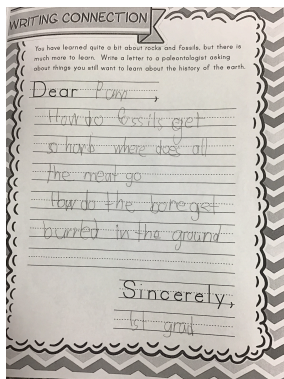 WRITING CONNECTION
You have learned quite a bit about rocks and fossils, but there is
much more to learn. Write a letter to a paleontologist asking
about things you still want to learn about the history of the earth.
Dear Pam,
How do fossils get
so hard where does all
the meat go
How do the bone get
burried in the ground
Sincerely,
1st grad